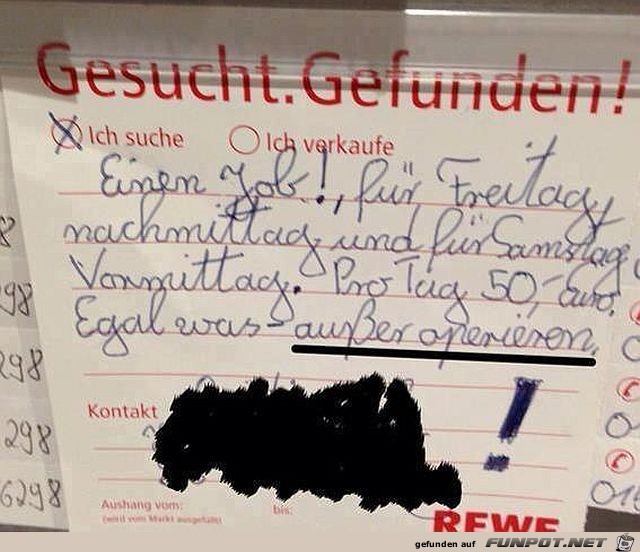 Gesucht.Gefunden!
Ich suche Ich verkaufe
Einen Job!, für Freitag,
nachmittag, und für Samstag,
Vormittag. Pro Tag 50,- Euro.
Egal was - außer operieren.
!
Kontakt
Aushang vom: bis:
(wird vom Markt ausgefüllt)
REWE
298
298
298
6298
gefunden auf FUNPOT.NET